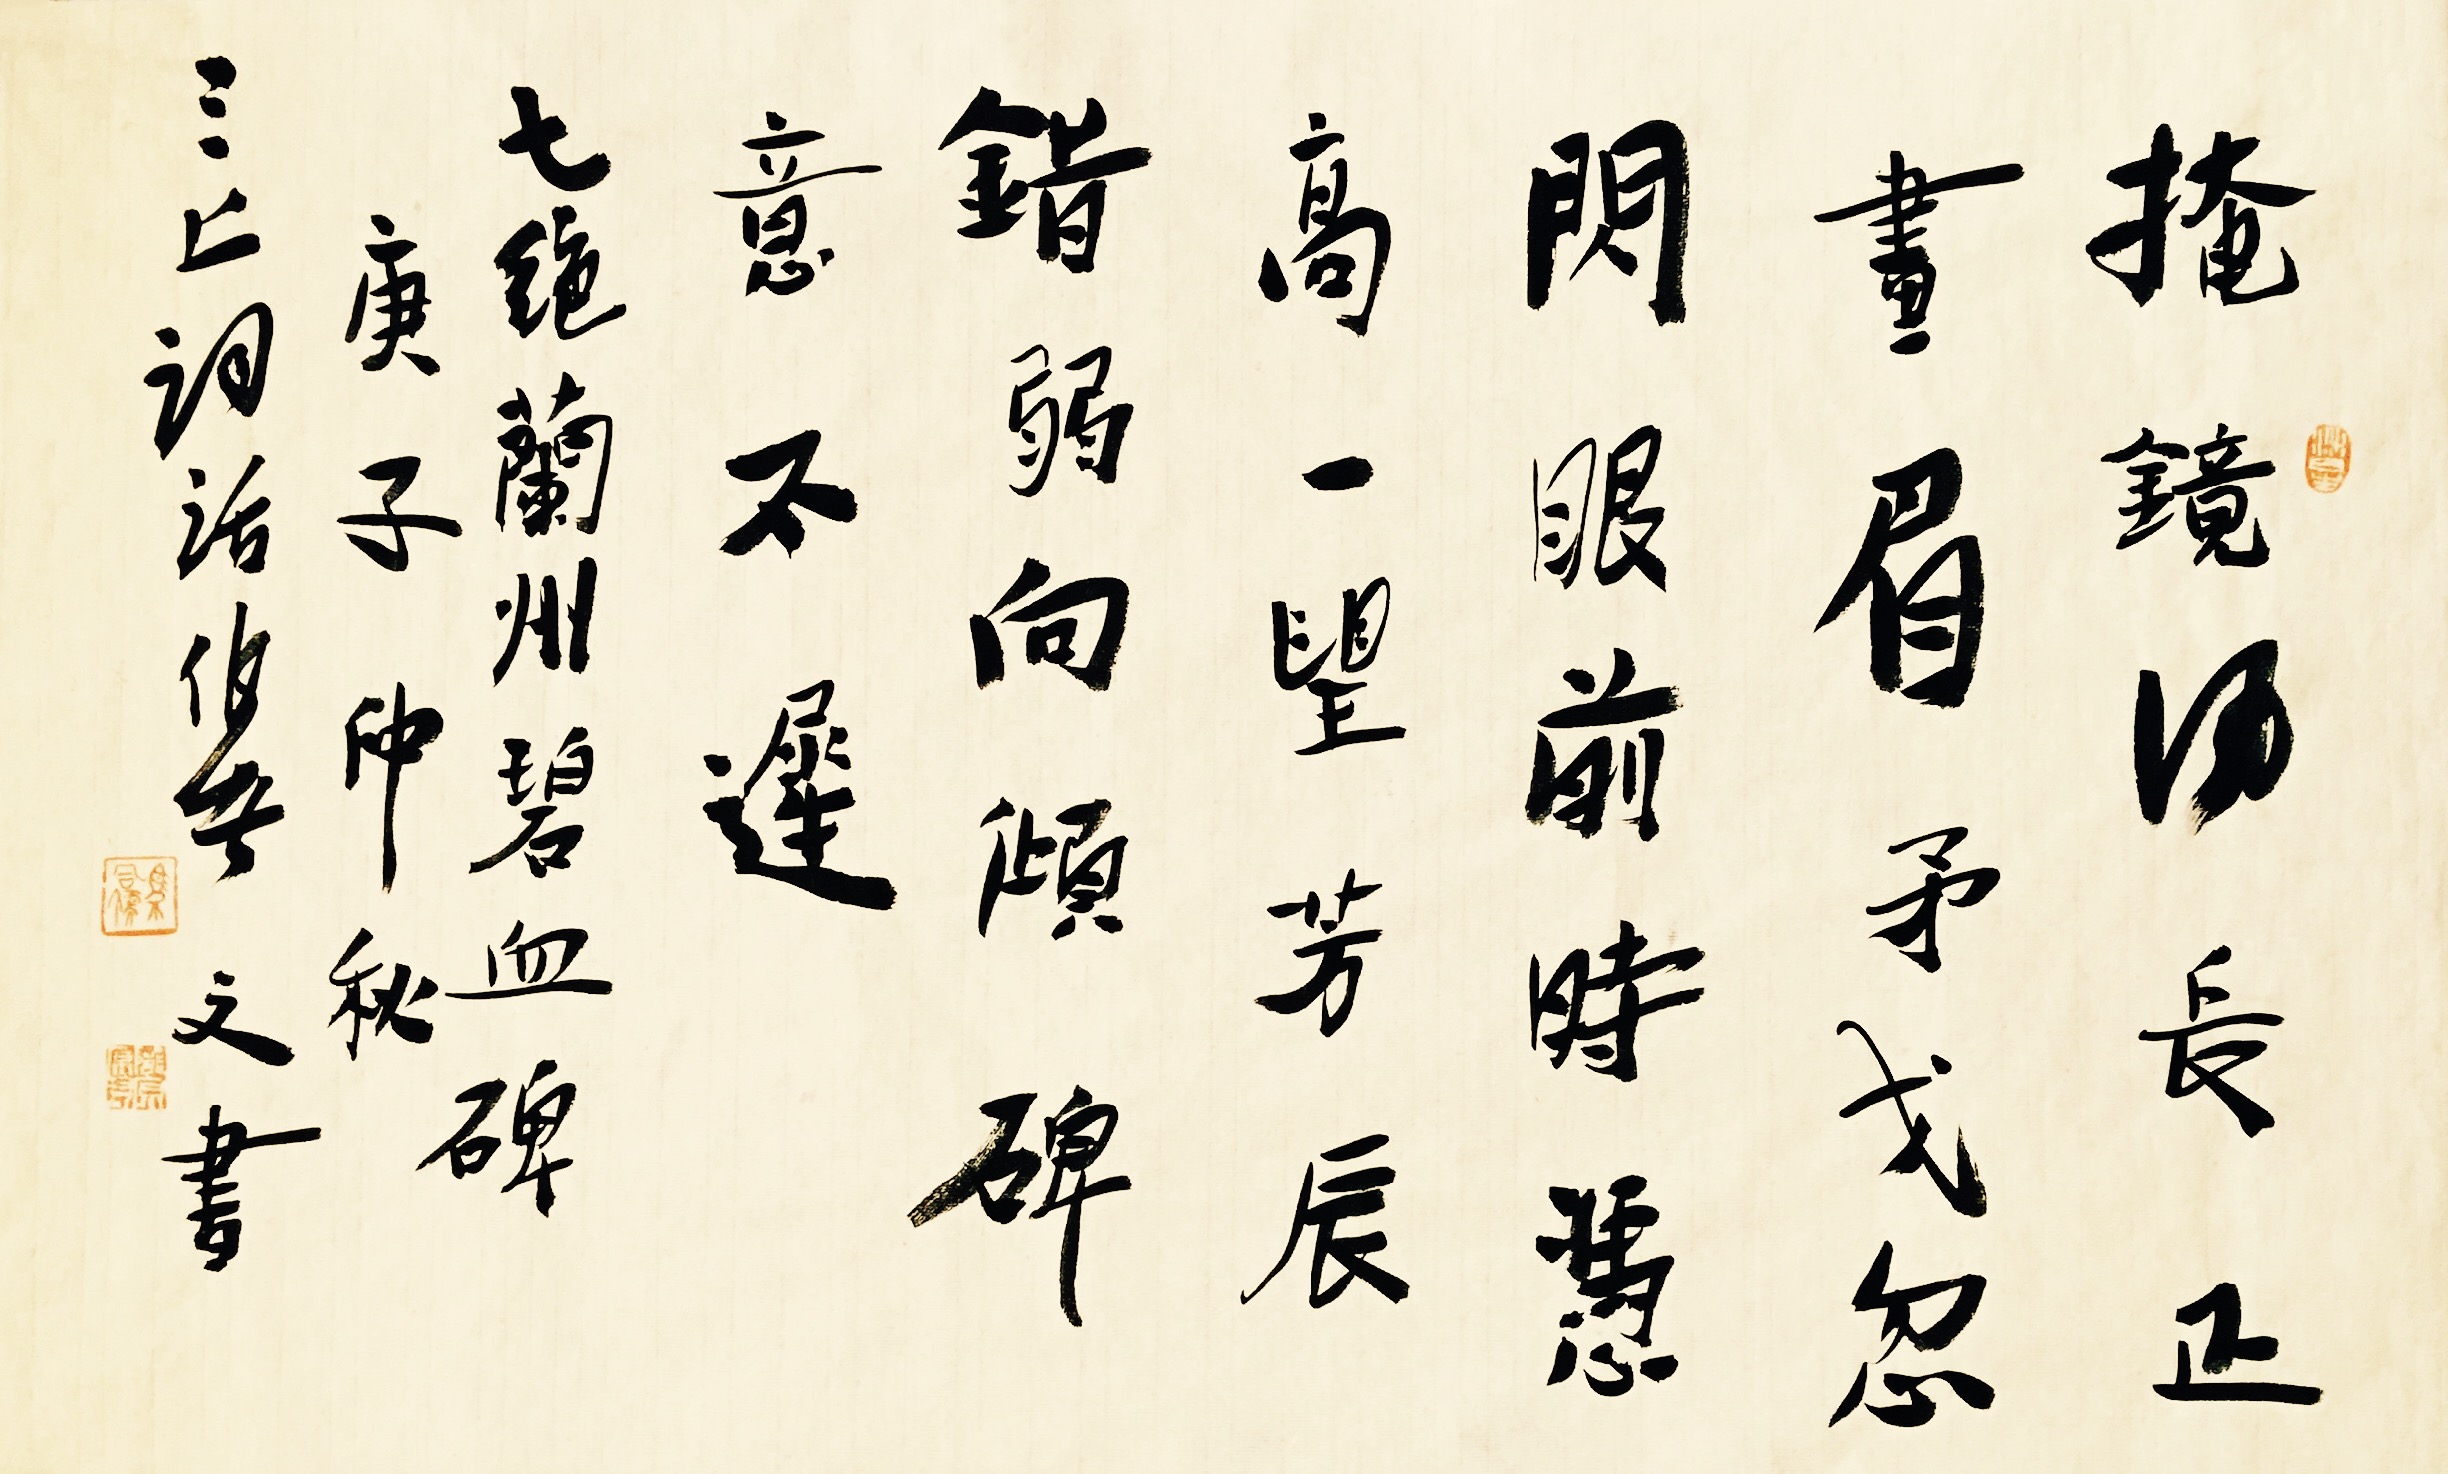 掩鏡長正
畫眉矛戈忽
閃眼前時憑
高一望芳辰
錯弱向傾碑
意不遲
七絕蘭州碧血碑
庚子仲秋
三上詞話文書